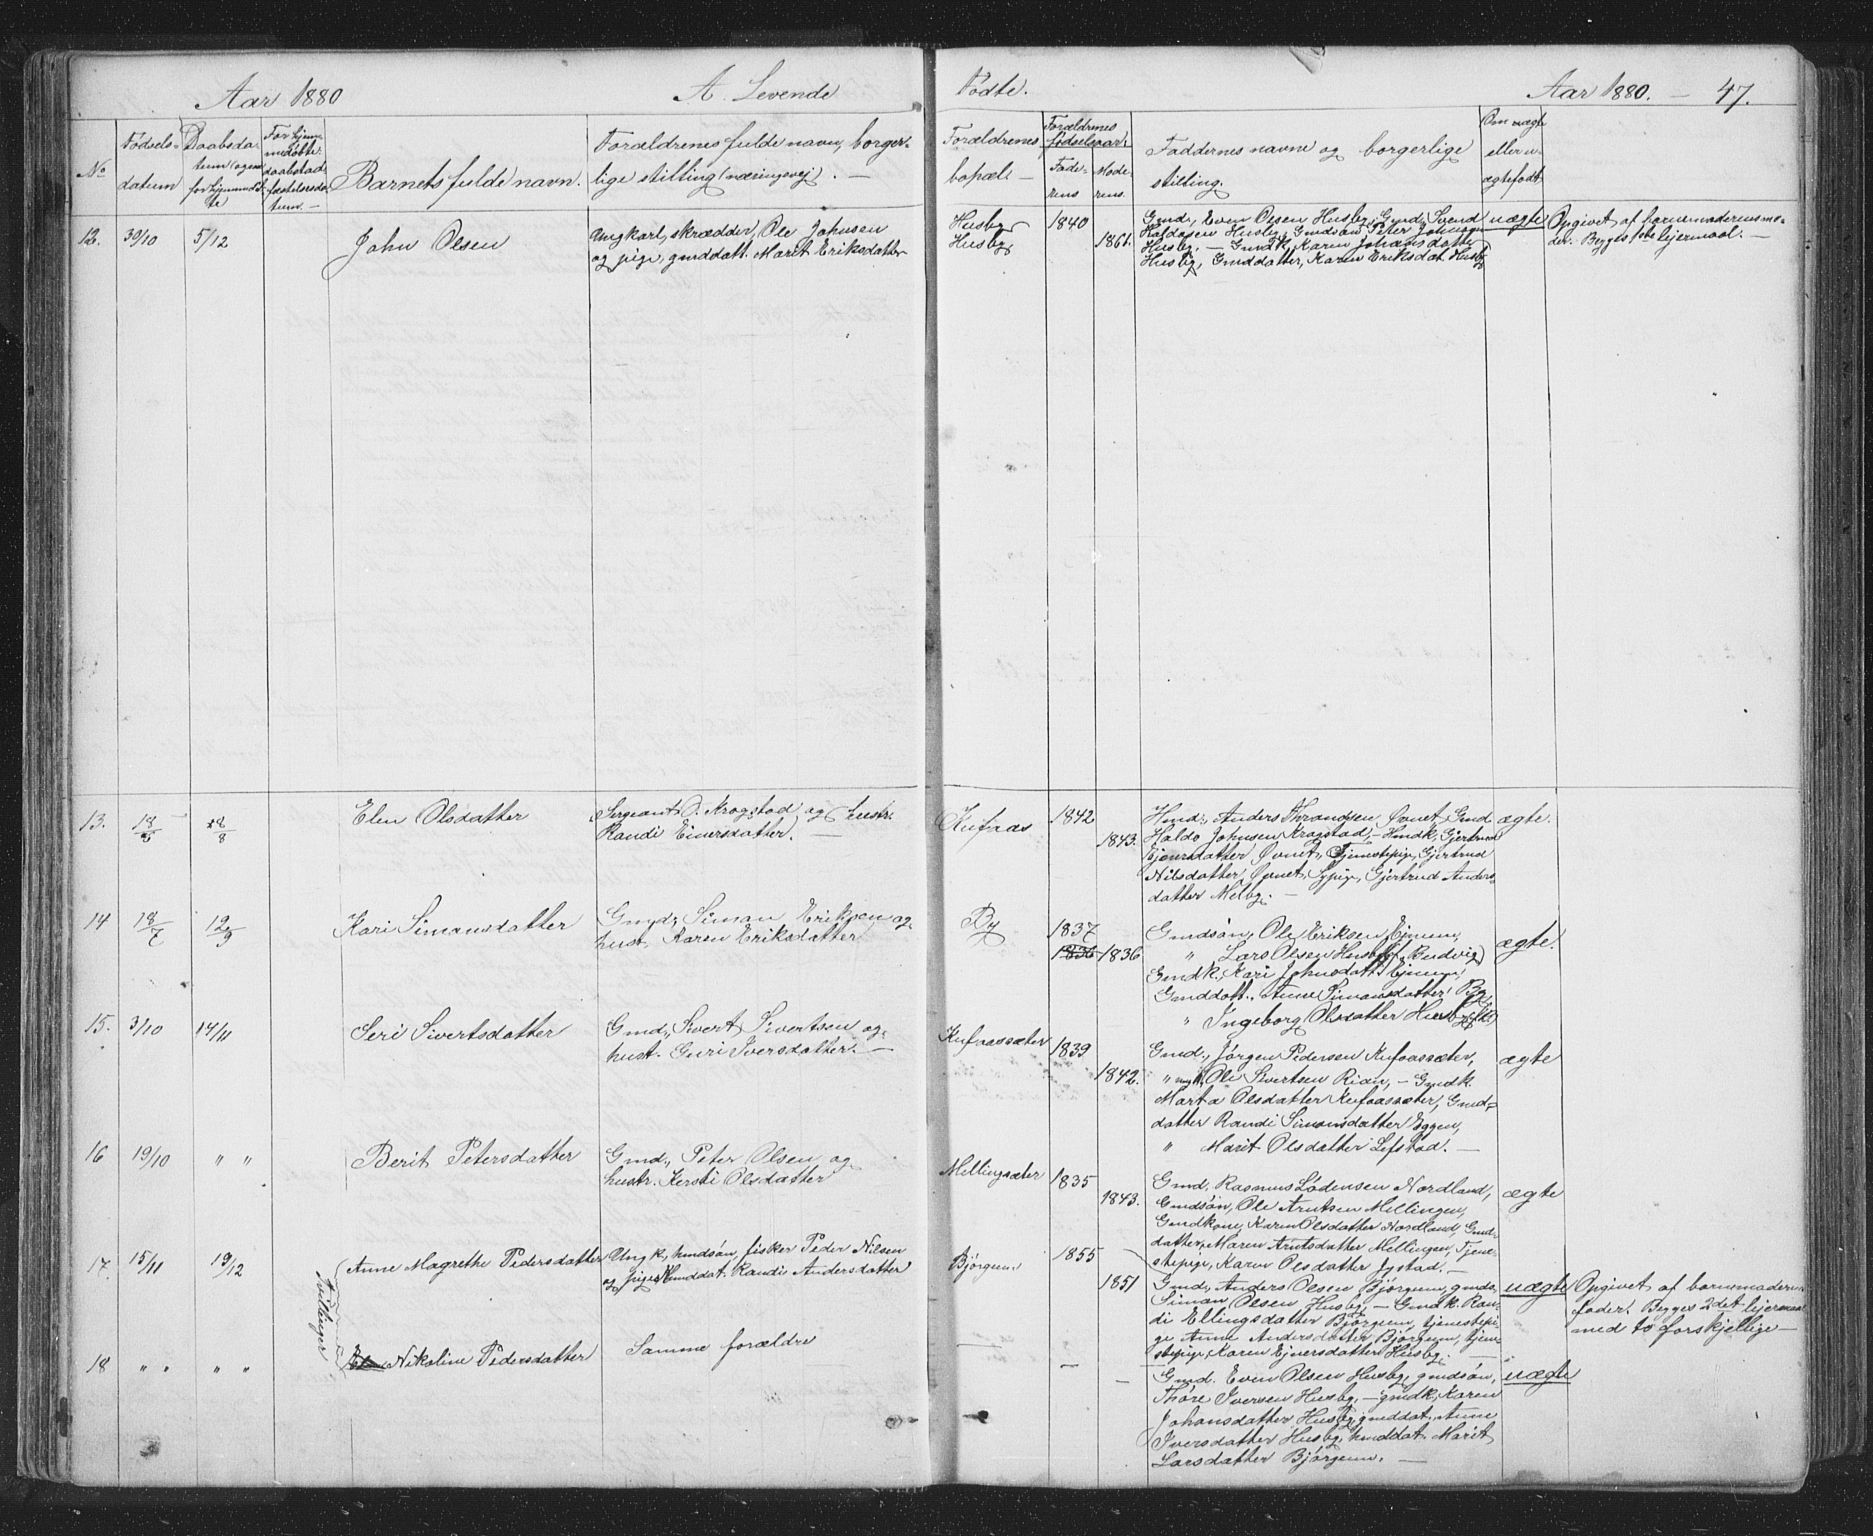 Aar 1880
A. Levende
Fødte.
Aar 1880. — 47.
No
Fødsels-
datum
Daabsda-
tum
for hjemmedøb-
te
For hjemme-
medøbte
daabstad-
fæstelsesda-
tum. —
Barnets fulde navn.
Forældrenes fulde navn, borger-
lige stilling (næringsvej). —
Forældrenes
bopæl —
Forældrenes
fødselsaar.
Fade-
rens
Mode-
rens.
Faddernes navne og borgerlige
stilling.
Om ægte
eller u-
ægtefødt
12. 30/10 5/12
John Olsen
Ungkarl, skrædder, Ole Johnsen
og pige, gmddatt. Marit Eriksdatter
Husby
Husby
1840
1861.
Gmd., Even Olsen Husby, Gmd., Svend
Haldosen Husby, Gmdsøn Peter Johnsen
Husby. — Gmdk, Karen Johansdatter
Husby, Gmddatter, Karen Eriksdat. Husby
uægte
Opgivet af barnemoderens mo-
der. Begges 1ste lejermaal. —
13. 18/5 28/8
Elen Olsdatter
Sergeant O. Krogstad og hustr.
Randi Einersdatter. —
Kufaas
1842
1843.
Hmd., Anders Throndsen Øvnet, Gmd
Haldo Johnsen Kragstad, — Hmdk. Gjertrud
Ejnersdatter Øvnet, Tjenestepige, Gjertrud
Nilsdatter, Øvnet, Sypige, Gjertrud Anders-
datter Melby. —
ægte.
14 18/7 12/9
Kari Simonsdatter
Gmd., Simon Eriksen og
hust. Karen Eriksdatter
By
1837
1836 1836
Gmdsøn, Ole Eriksen Ejnum,
" Lars Olsen Husby (Rudvig)
Gmdk., Kari Johnsdatt. Ejnum,
Gmddatt., Anne Simonsdatter By,
" Ingeborg Olsdatter Husby
ægte.
15. 3/10 14/11
Seri Sivertsdatter
Gmd., Sivert Sivertsen og
hust. Guri Iversdatter. —
Kufaassæter
1839
1842.
Gmd., Jørgen Pedersen Kufaassæter,
" Ole Sivertsen Rian, — Gmdk.
Marta Olsdatter Kufaassæter, Gmd-
datter Randi Simonsdatter Eggen,
" Marit Olsdatter Lefstad. —
ægte
16 19/10 " "
Berit Petersdatter
Gmd., Peter Olsen og
hustr. Kersti Olsdatter
Mellingsæter
1835
1843.
Gmd, Rasmus Lødensen Nordland,
Gmdsøn, Ole Arntsen Mellingen,
Gmdkone, Karen Olsdatter Nordland, Gmd-
datter, Maren Arntsdatter Mellingen, Tjene-
stepige, Karen Olsdatter Jystad. —
ægte
17. 15/11 19/12
Tvillinger
Anne Magrethe Pedersdatter
Ungk., hmdsøn, fisker Peder Nilsen
og Pige Hmddat. Randi Andersdatter
Bjørgum
1855
1851
Gmd., Anders Olsen Bjørgum, gmds.
Simon Olsen Husby, — Gmdk. Ran-
di Ellingsdatter Bjørgum, tjenestepi-
ge Anne Andersdatter Bjørgum, tjene-
stepige, Karen Ejnersdatter Husby. —
uægte
Opgivet af barnemoderens
fader. Begges 2det lejermaal
med to forskjellige —
18 " " " "
Nikoline Pedersdatter
Samme forældre
—
—
Gmd. Even Olsen Husby, gmdsøn,
Thore Iversen Husby, — gmdk, Karen
Johansdatter Husby, gmddat. Anne
Iversdatter Husby, hmddat. Marit
Larsdatter Bjørgum. —
uægte